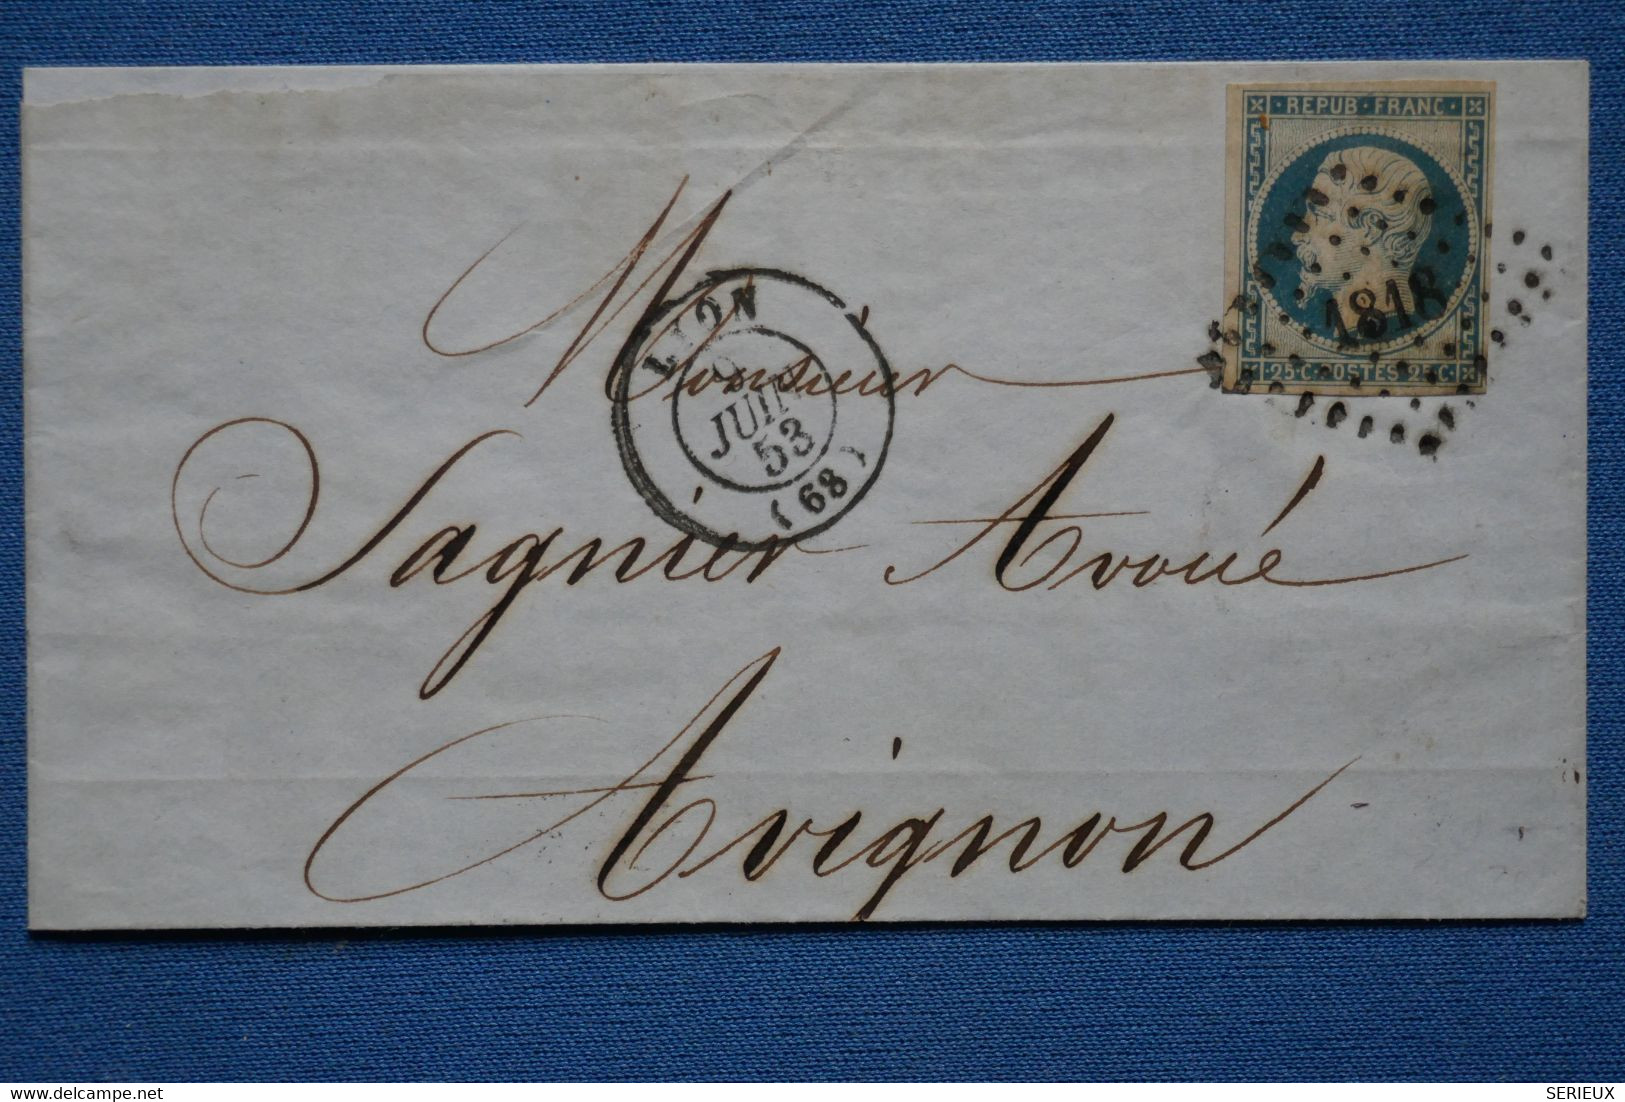 REPUB FRANC
1818
25 C POSTES 25 C
LYON
9
JUIN
53
(68)
Monsieur
Sagnier Avoué
Avignon
delcampe.net
SERIEUX